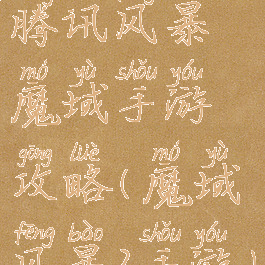 腾讯风暴
mó yù shǒu yóu
魔域手游
gōng lüè mó yù
攻略(魔域
fēng bào shǒu yóu
风暴)手游)